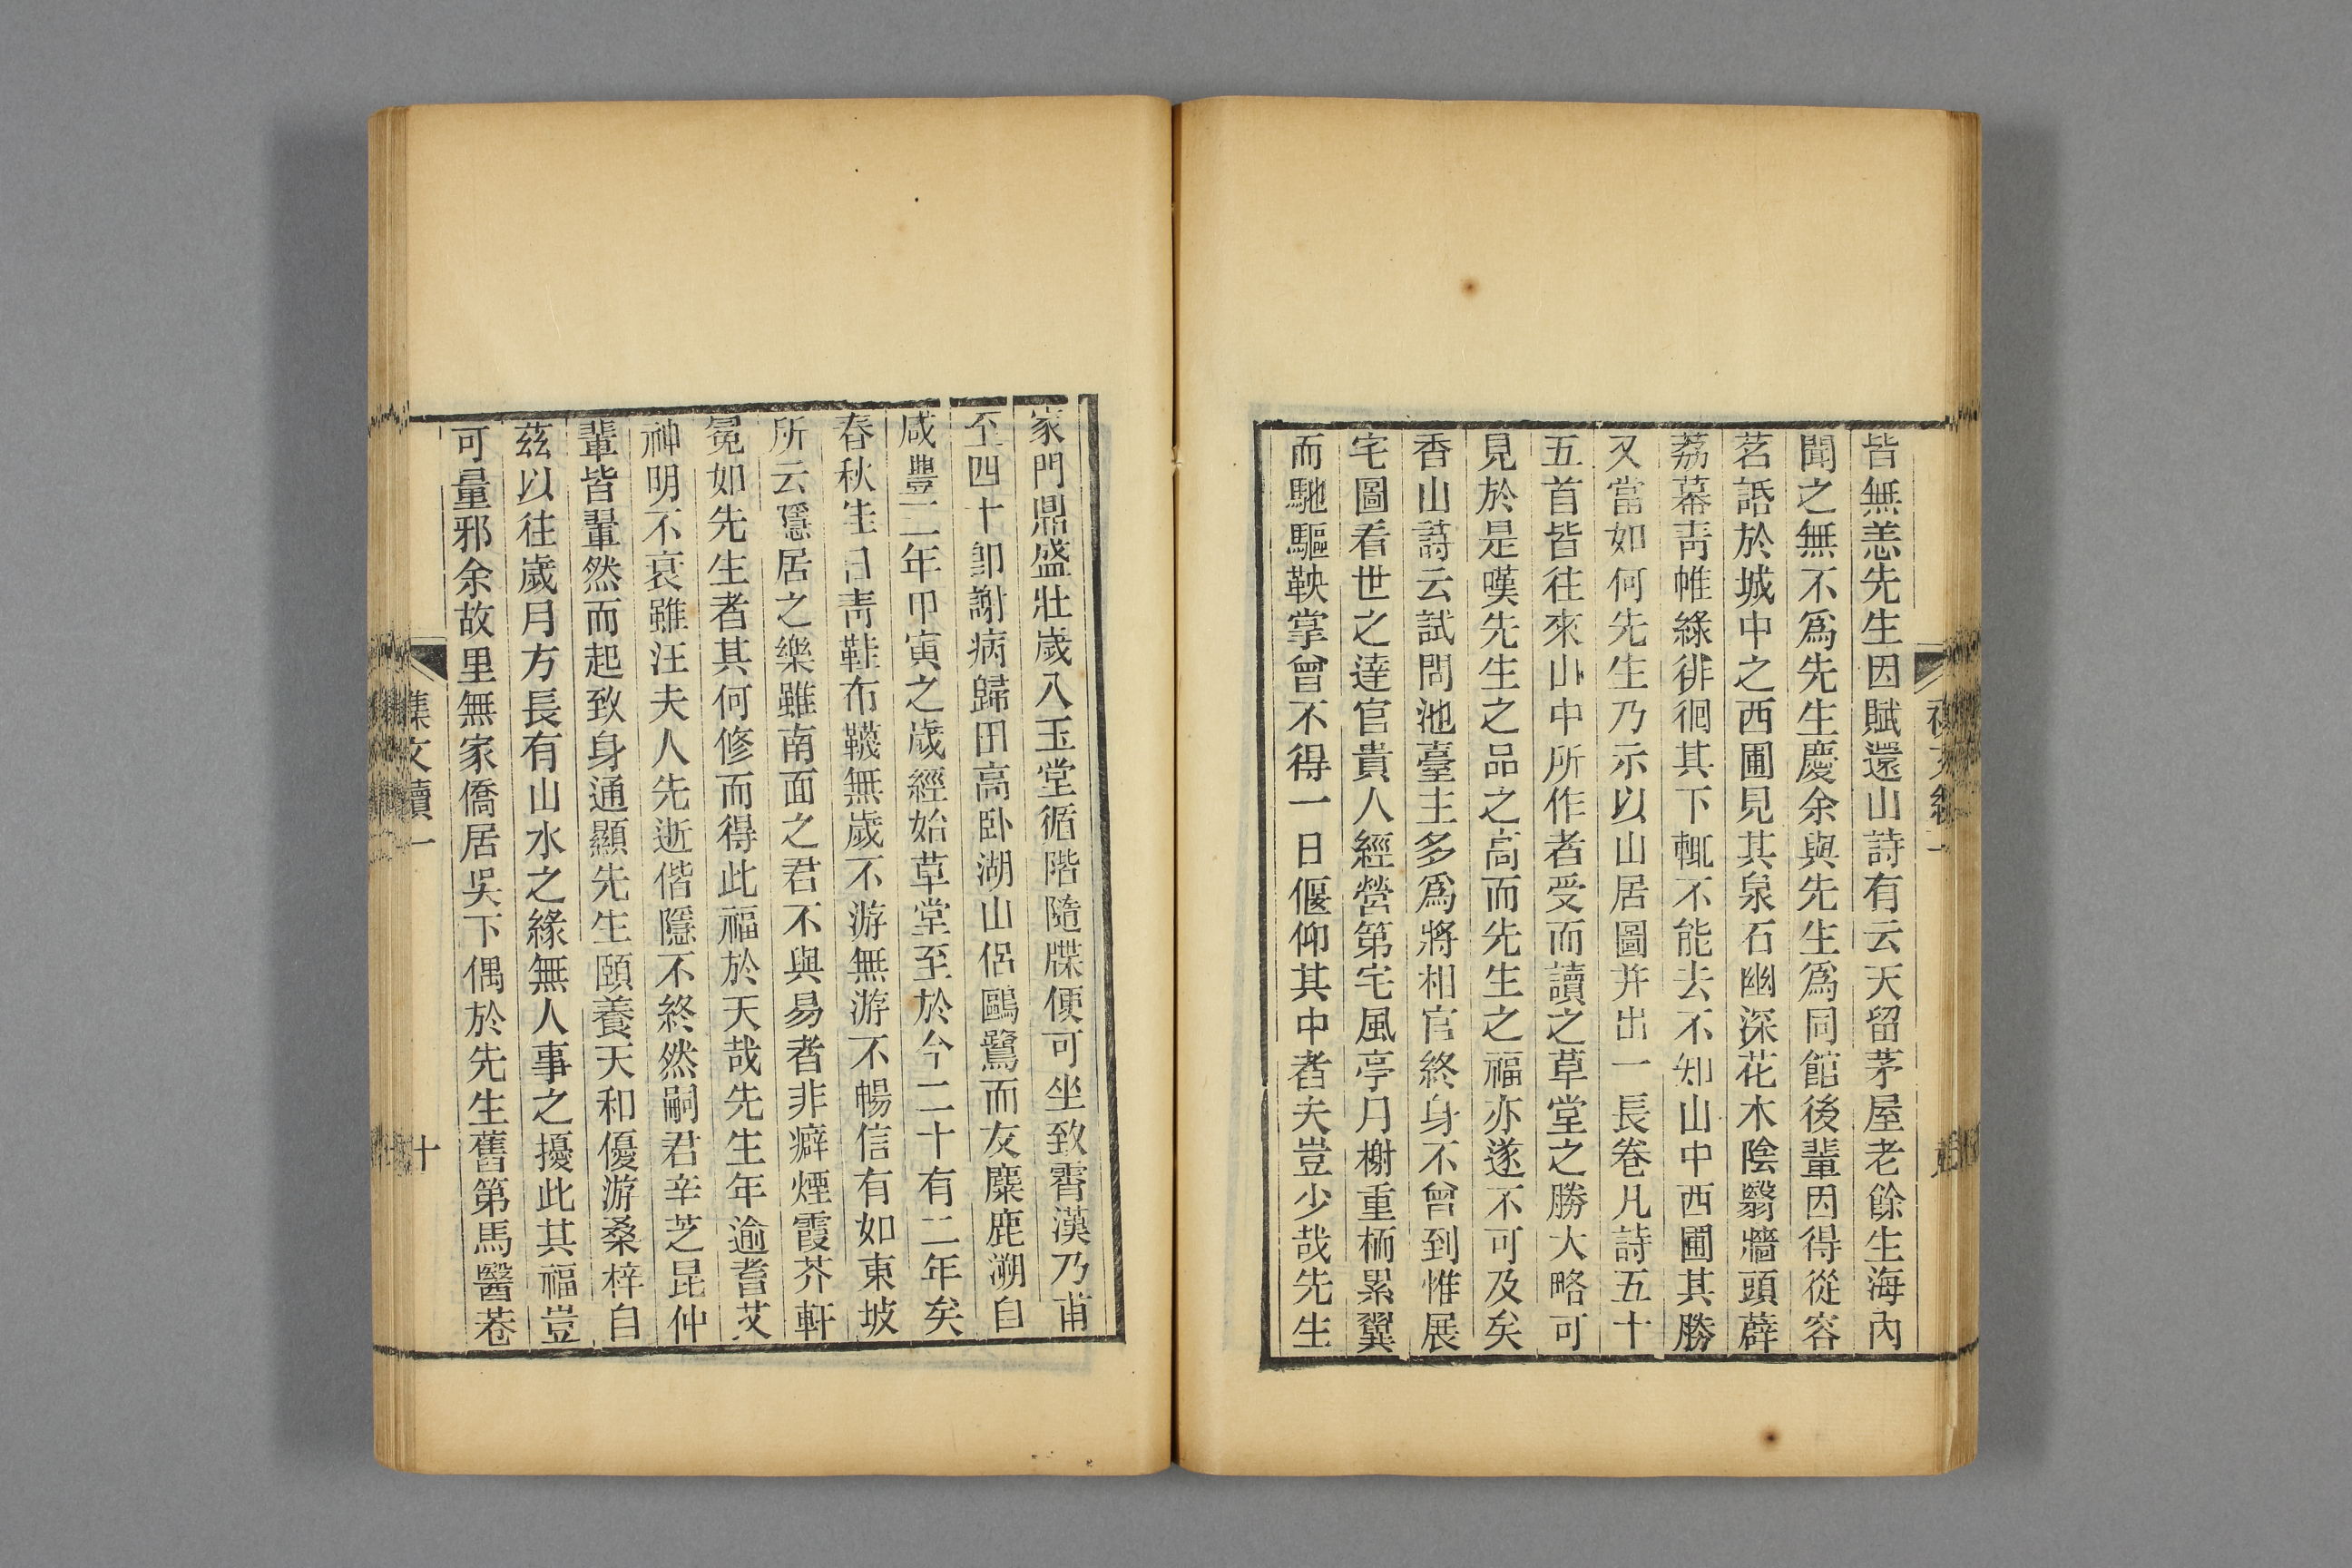 皆無恙先生因賦還山詩有云天留茅屋老餘生海內
聞之無不爲先生慶余與先生爲同館後輩因得從容
茗話於城中之西圃見其泉石幽深花木陰翳牆頭薜
荔幕靑帷綠徘徊其下輒不能去不知山中西圃其勝
又當如何先生乃示以山居圖幷出一長卷凡詩五十
五首皆往來山中所作者受而讀之草堂之勝大略可
見於是嘆先生之品之高而先生之福亦遂不可及矣
香山詩云試問池臺主多爲將相官終身不曾到惟展
宅圖看世之達官貴人經營第宅風亭月榭重栭累翼
而馳驅鞅掌曾不得一日偃仰其中者夫豈少哉先生
家門鼎盛壯歲入玉堂循階隨牒便可坐致霄漢乃甫
至四十卽謝病歸田高卧湖山侶鷗鷺而友麋鹿溯自
咸豐二年甲寅之歲經始草堂至於今二十有二年矣
春秋佳日靑鞋布韈無歲不游無游不暢信有如東坡
所云隱居之樂雖南面之君不與易者非癖煙霞芥軒
冕如先生者其何修而得此福於天哉先生年逾耆艾
神明不衰雖汪夫人先逝偕隱不終然嗣君辛芝昆仲
輩皆翬然而起致身通顯先生頤養天和優游桑梓自
茲以往歲月方長有山水之緣無人事之擾此其福豈
可量邪余故里無家僑居吳下偶於先生舊第馬醫巷
集文續一
十